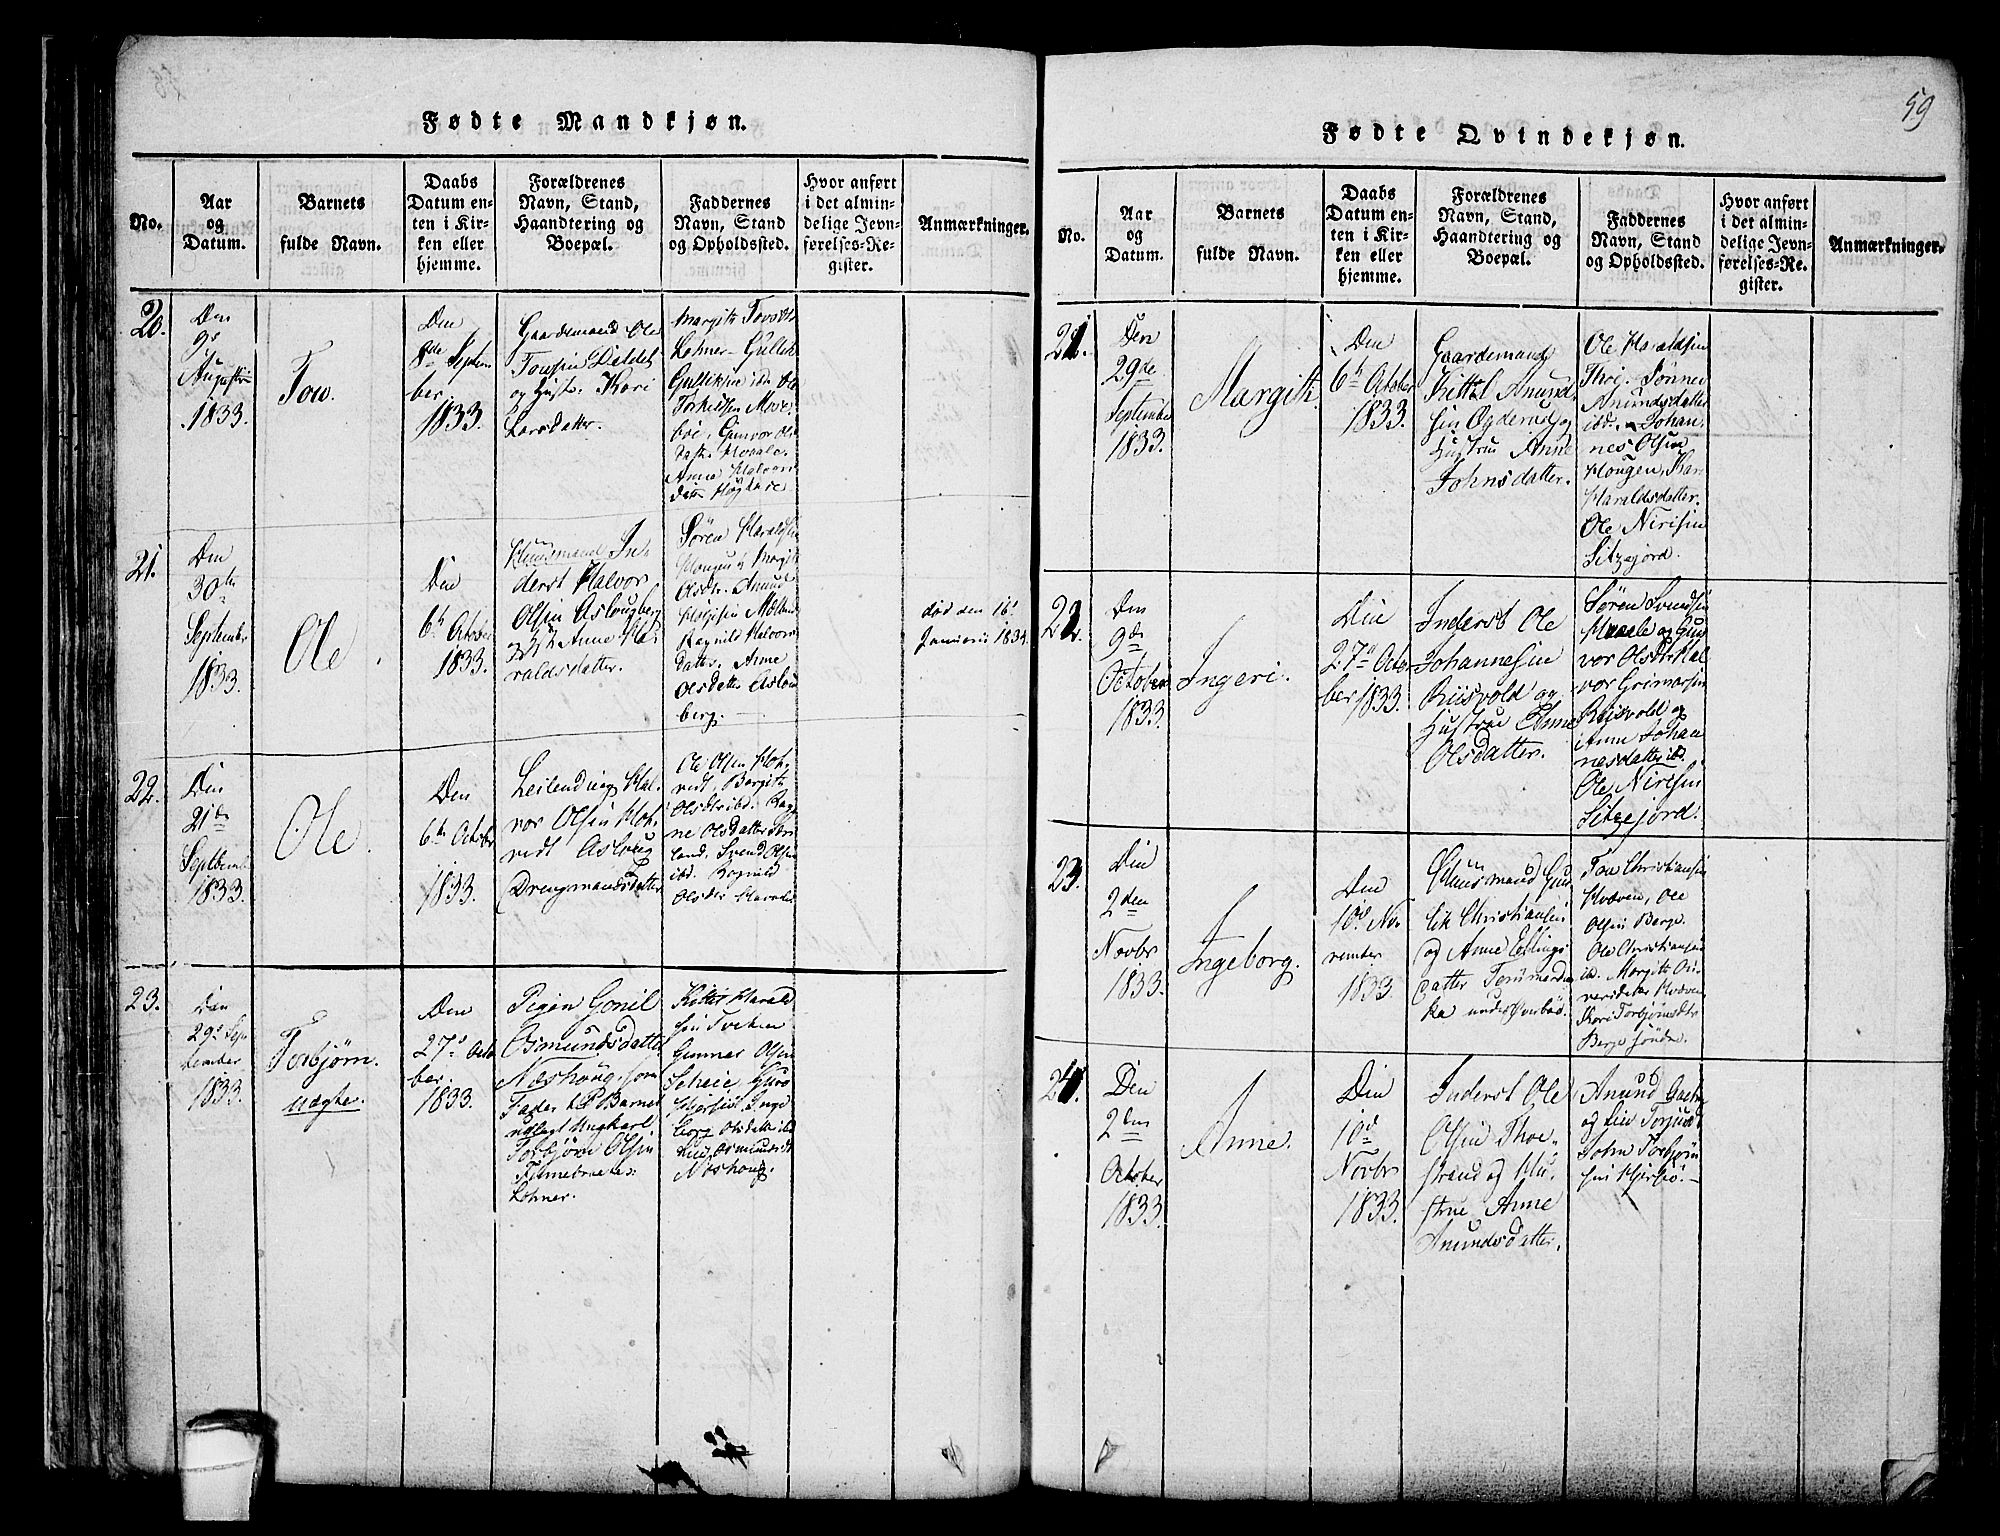 59
Fødte Mandkjøn.
No.
Aar
og
Datum.
Barnets
fulde Navn.
Daabs
Datum en-
ten i Kir-
ken eller
hjemme.
Forældrenes
Navn, Stand,
Haandtering og
Boepæl.
Faddernes
Navn, Stand
og Opholdssted.
Hvor anført
i det almin-
delige Jevn-
førelses-Re-
gister.
Anmærkninger.
20.
Den
9de
Augusti
1833.
Tov.
Den
8de Septem
ber.
1833.
Gaardemand Ole
Tovsen Daldel
og Hustr. Kari
Larsdatter.
Margith Tovsdtr
Lohner- Gullek
Gulliksen ibd. Ole
Torkildsen Moe
Gunvor Ols
datr.
Anne Halvors
datr.
21.
Den
30te
September
1833.
Ole
Den
6te October
1833.
Huusmand In-
derst Halvor
Olsen Aslougberg
Anne Ha-
raldsdatter.
Søren Haraldsen
Hougen og Margit
Olsdtr. Anund
Ragnild Halvors
datter, Anne
Olsdatter Aslou
berg.
død den 16de
Januarii 1834.
22.
Den
21de
Septemb.
1833.
Ole.
Den
6te October
1833.
Leilending Hal-
vor Olsen Hot-
vedt Asloug
Drengmandsdatter
Ole Olsen Hot-
vedt, Bergith
Olsdtr ibd. Rag
ne Olsdatter
land, Svend Olsen
ibd. Ragnild
Olsdtr
23.
Den
29de Sep
tember
1833.
Torbjørn.
uægte.
Den
27de Octo
ber.
1833.
Pigen Gonil
Osmundsdatter
Næshoug, som
Fader t. Barnet
udlagt Ungkarl
Torbjørn Olsen
Lohner.
Kittel Harald
sen Tveten
Gunner Olsen
Scheie, Guro
Inge
borg Olsdatter ibd
Osmundsdt
Næshoug
Fødte Qvindekjøn.
No.
Aar
og
Datum.
Barnets
fulde Navn.
Daabs
Datum en-
ten i Kir-
ken eller
hjemme.
Forældrenes
Navn, Stand,
Haandtering og
Boepæl.
Faddernes
Navn, Stand
og Opholdssted.
Hvor anført
i det almin-
delige Jevn-
førelses-Re-
gister.
Anmærkninger.
21.
Den
29de
September
1833.
Margith.
Den
6te October
1833.
Gaardemand
Kittel Anund
sen Ogderne og
Hustrue Anne
Johnsdatter.
Ole Haraldsen
Thrj. Sønnev
Anundsdatter
ibd. Johan
nes Olsen
Hougen, Kar
Haraldsdatter.
Ole Nirisen
Sitzejord.
22.
Den
9de
October
1833.
Ingeri.
Den
27de Octo
ber 1833.
Inderst Ole
Johannesen
Riisvold og
Hustrue Anne
Olsdatter.
Søren Svendsen
Maale og Gun
vor Olsdtr. Hal
vor Grimarsen
Riisvold og
Anne Johan
nesdatter ibd.
Ole Nirisen
Sitzejord.
23.
Den
2den
Novbr
1833.
Ingeborg.
Den
10de No-
vember
1833.
Huusmand Gul
lik Christiansen
og Anne Ellings
datter
under
Tov Christiansen
Kvæven, Ole
Olsen Berge.
Ole Christiansen
ibd. Margith On
versdatter Kvæven,
Kari Torbjørnsdtr
Berge søndre.
24.
Den
2den
October
1833.
Anne.
Den
10de
Novbr
1833.
Inderst Ole
Olsen Thoe-
strand og Hu-
strue Anne
Anundsdatter.
Anund
og Liv
John Torbjørn
sen